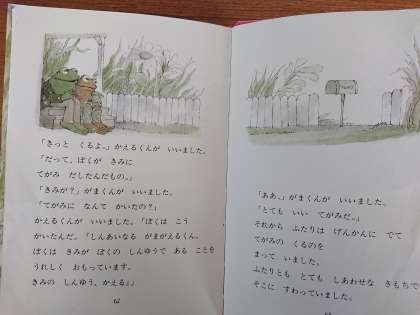 「きっと くるよ。」かえるくんが いいました。
「だって、ぼくが きみに
てがみ だしたんだもの。」
「きみが？」がまくんが いいました。
「てがみに なんて かいたの？」
かえるくんが いいました。「ぼくは こう
かいたんだ。『しんあいなる がまがえるくん。
ぼくは きみが ぼくの しんゆうで ある ことを
うれしく おもっています。
きみの しんゆう、かえる』」
62
「ああ。」がまくんが いいました。
「とても いい てがみだ。」
それから ふたりは げんかんに でて
てがみの くるのを
まって いました。
ふたりとも とても しあわせな きもちで
そこに すわっていました。